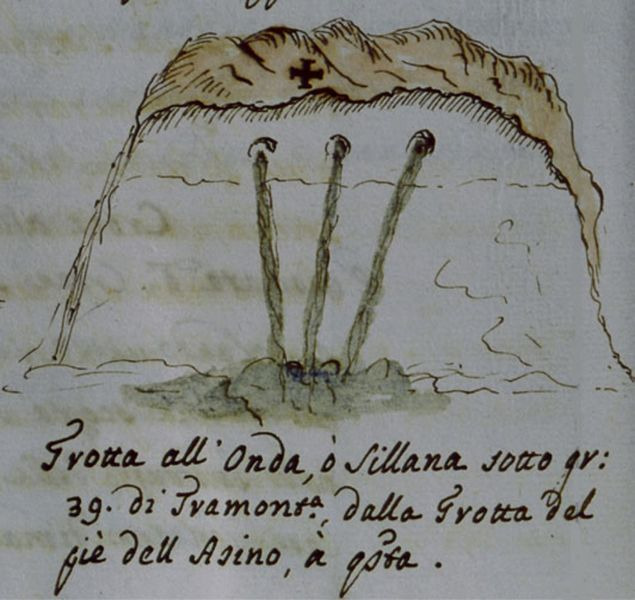 Grotta all' Onda, ò Sillana sotto gr:
39. di Tramont.ª, dalla Grotta del
piè dell Asino, à qsta.